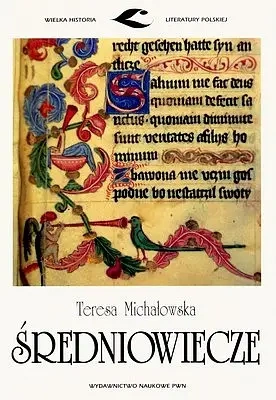 WIELKA HISTORIA LITERATURY POLSKIEJ
recht gesehen hatte syn an
thcze
Saluum me fac deus
quoniam defecit sa
ctus · quoniam diminute
sunt veritates a filijs ho
minum
Zbawona me uczin gos
podne bo nestatczil swoty
Teresa Michałowska
ŚREDNIOWIECZE
WYDAWNICTWO NAUKOWE PWN